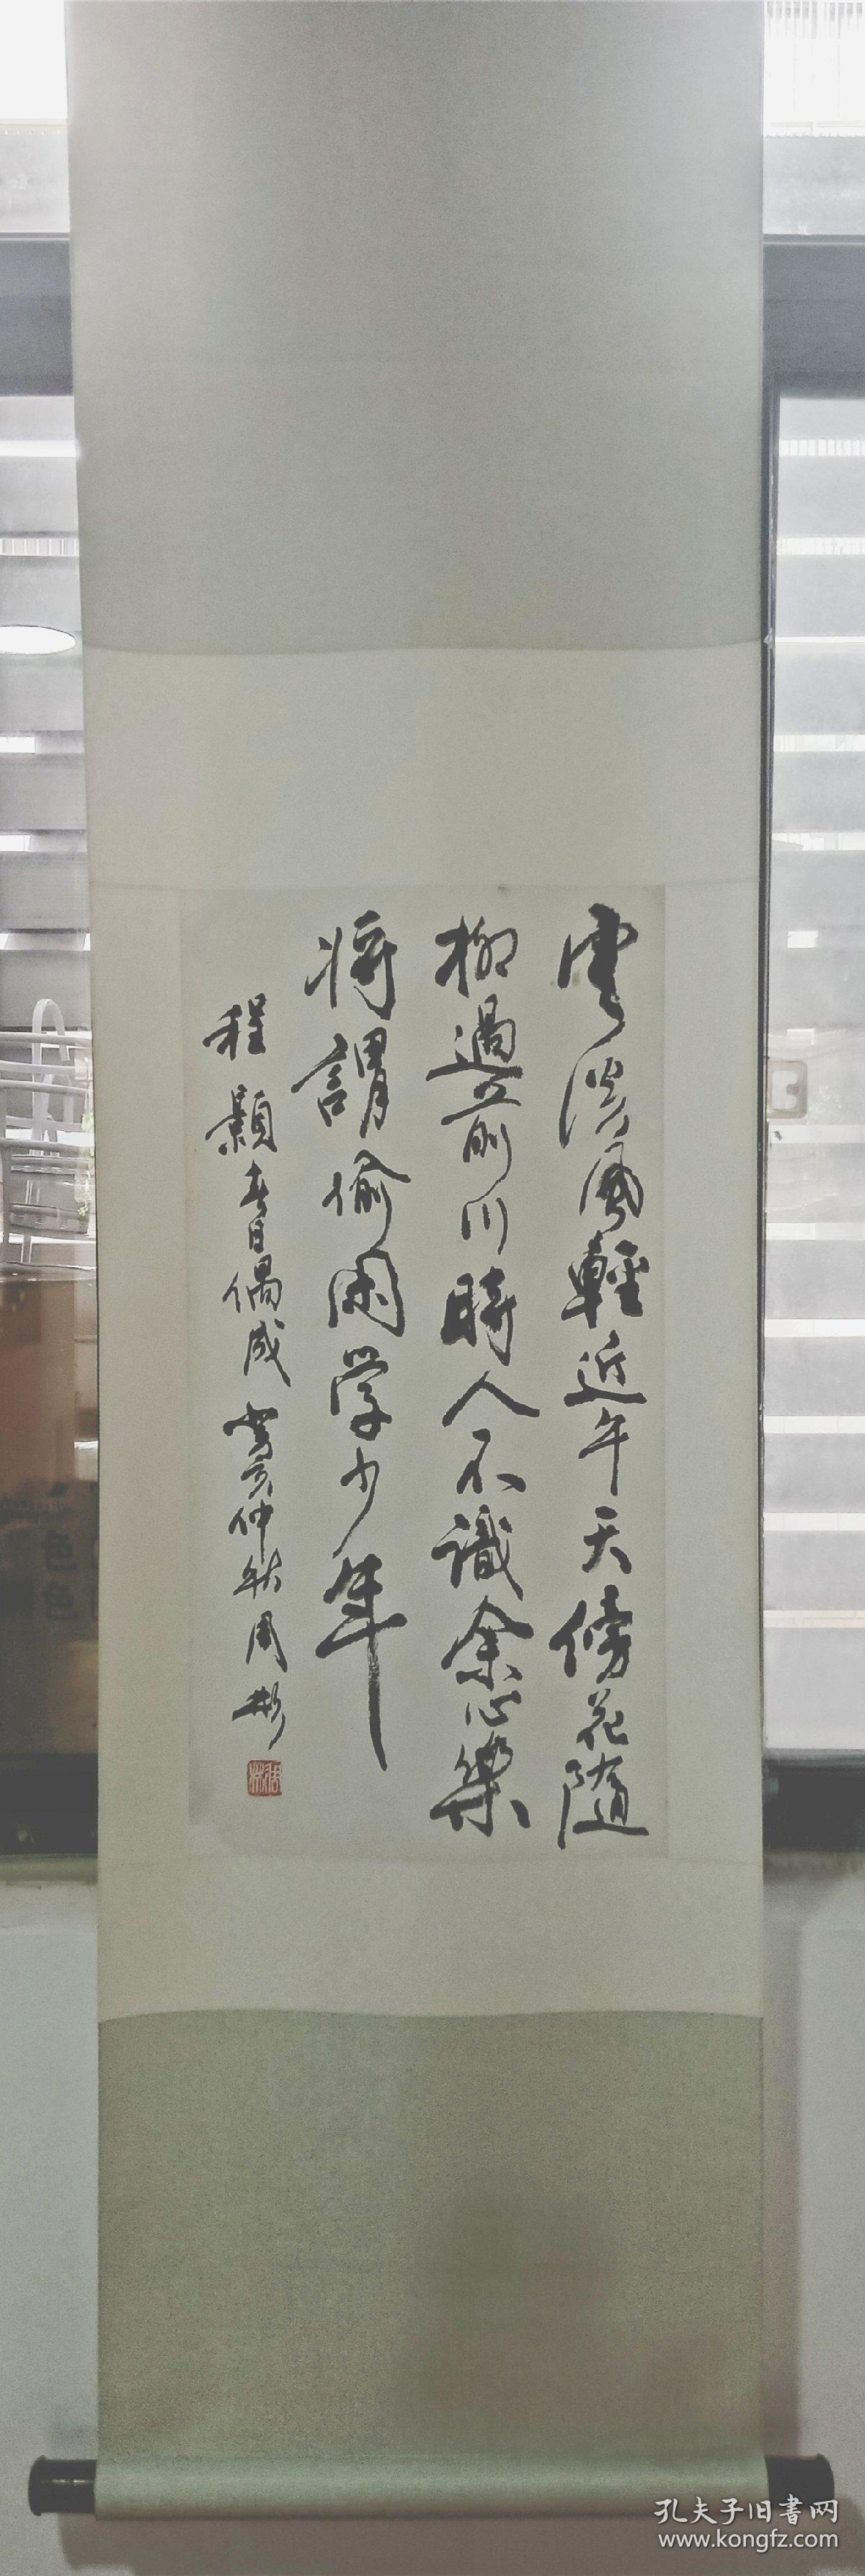 雲淡風輕近午天傍花随
柳過前川時人不識余心樂
将謂偷闲学少年
程顥春日偶成 癸亥仲秋周彬
周彬
孔夫子旧書网
www.kongfz.com